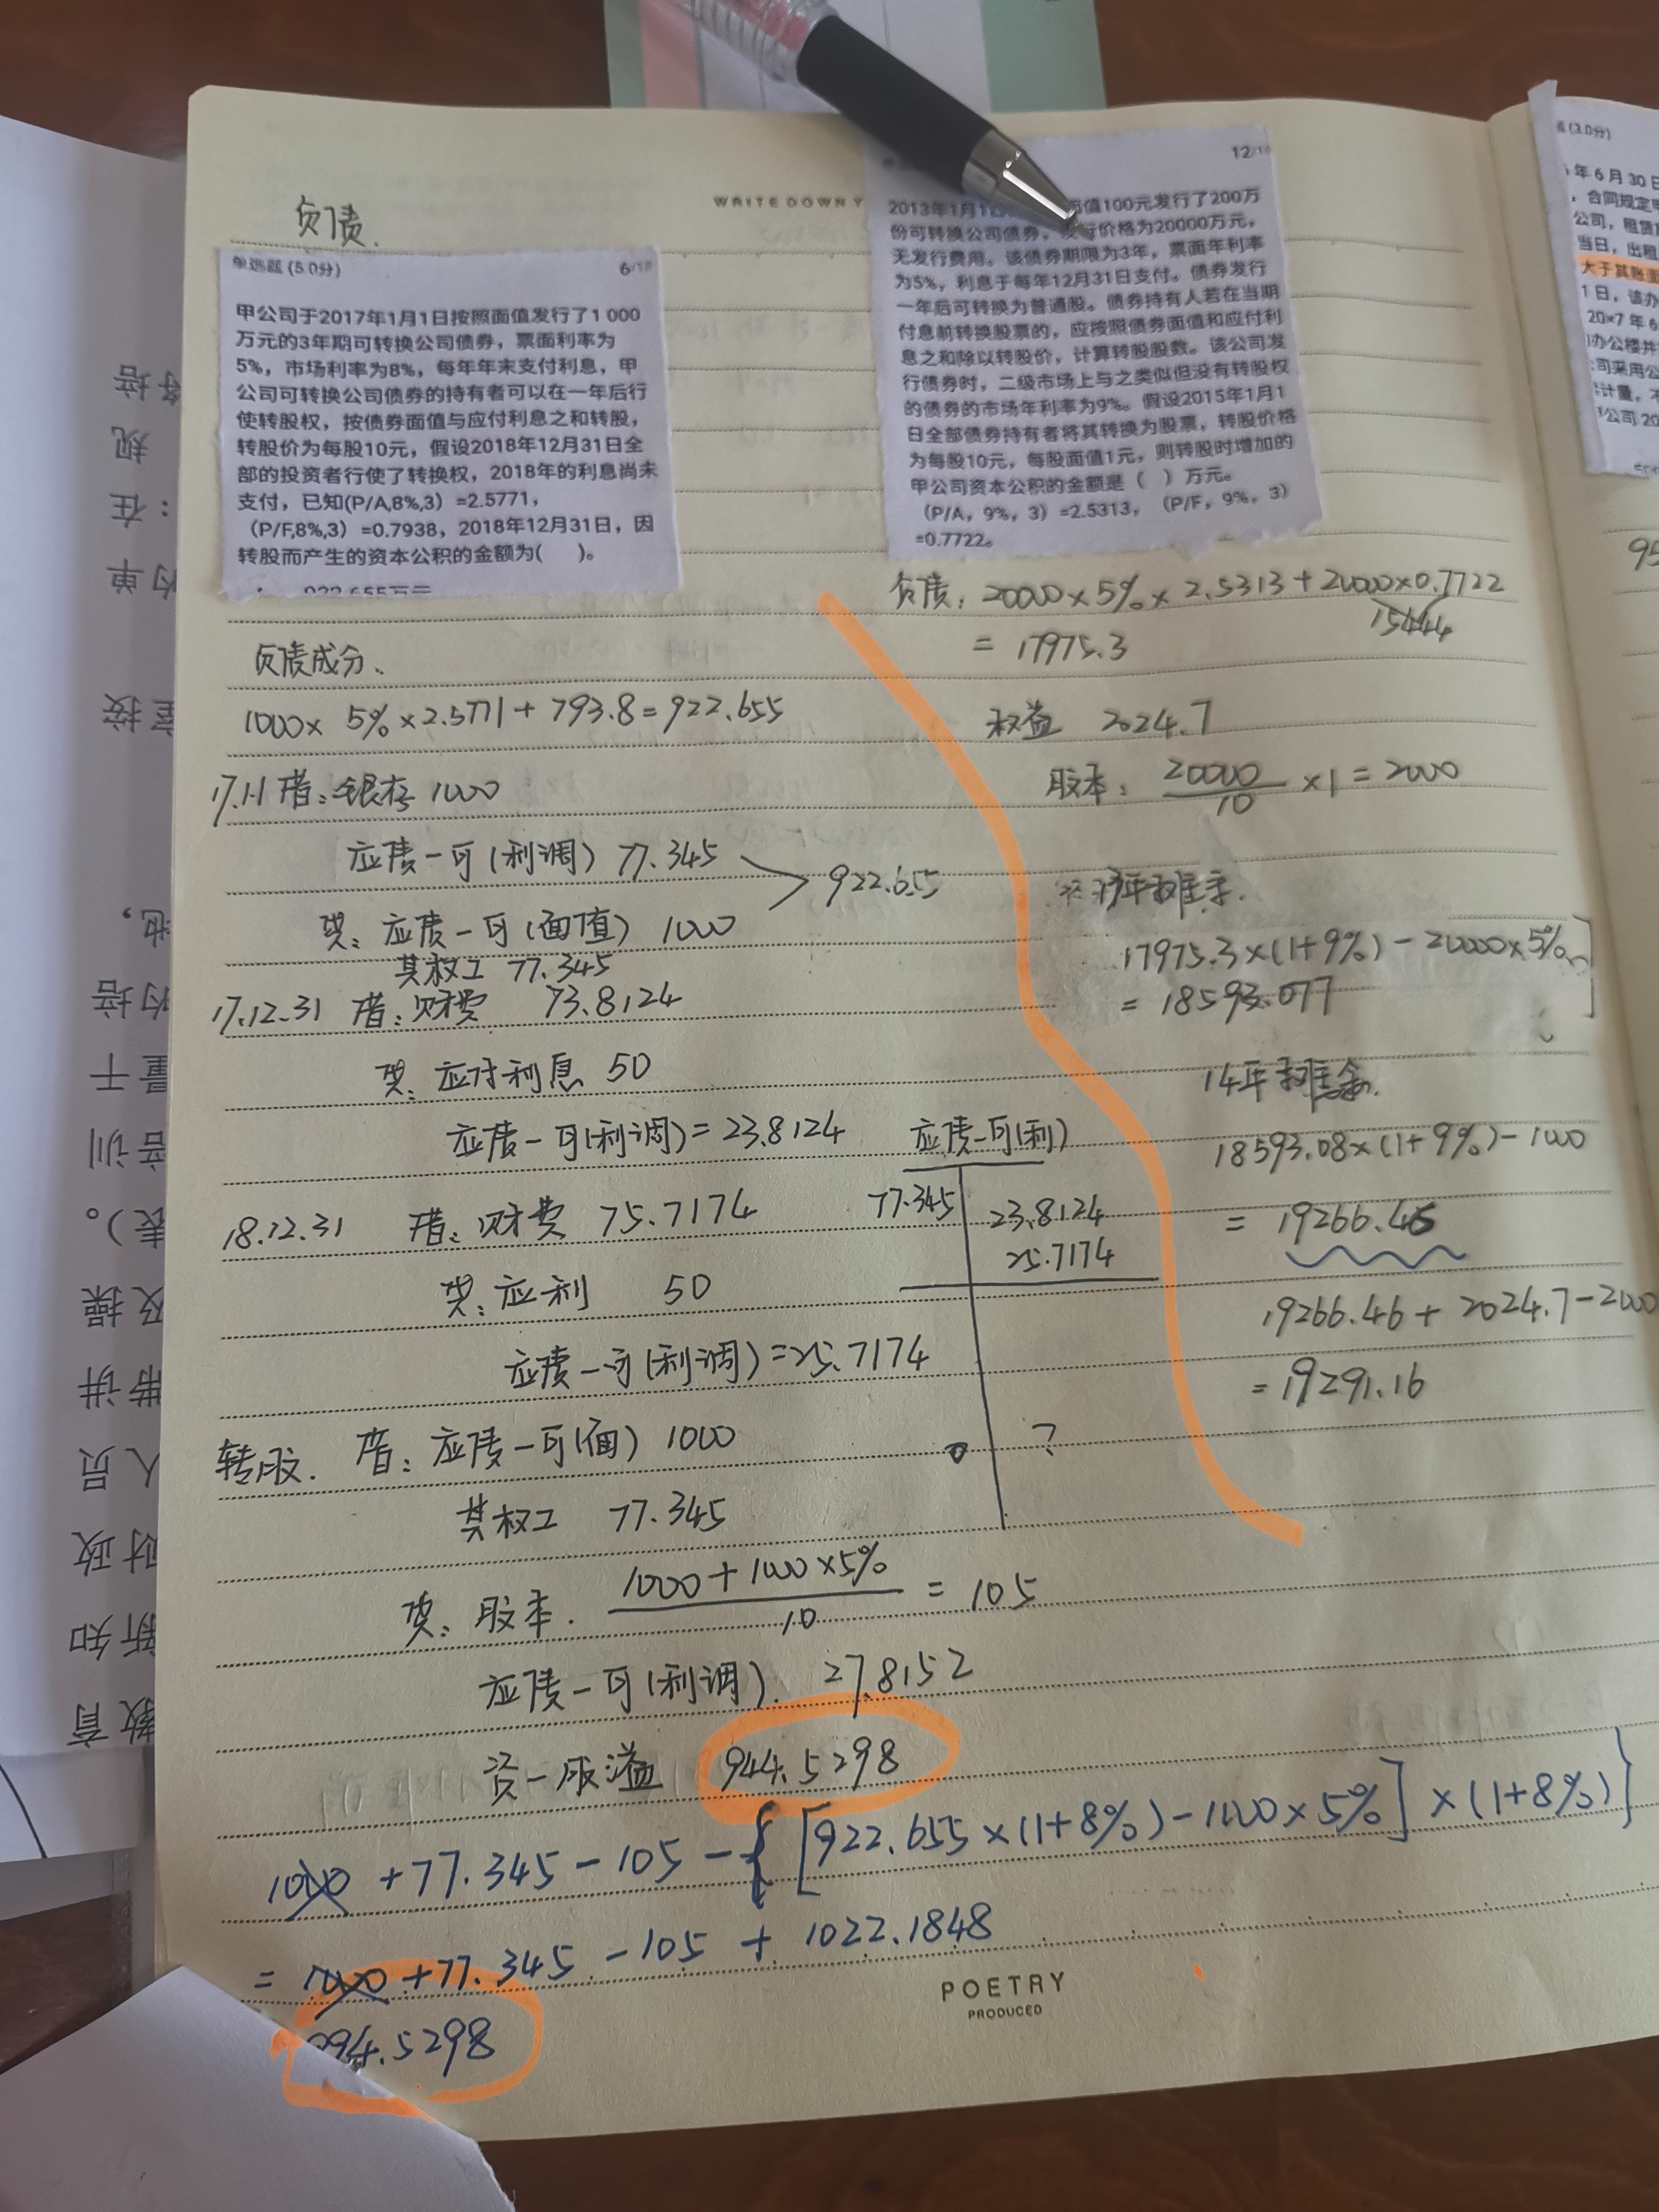 负债.
WRITE DOWN Y
单选题 (5.0分) 6/18
甲公司于2017年1月1日按照面值发行了1 000
万元的3年期可转换公司债券，票面利率为
5%，市场利率为8%，每年年末支付利息，甲
公司可转换公司债券的持有者可以在一年后行
使转股权，按债券面值与应付利息之和转股，
转股价为每股10元，假设2018年12月31日全
部的投资者行使了转换权，2018年的利息尚未
支付，已知(P/A,8%,3）=2.5771，
（P/F,8%,3）=0.7938，2018年12月31日，因
转股而产生的资本公积的金额为(　)。
922.655万元
负债成分、
1000× 5%×2.5771+793.8=922.655
17.1.1 借:银存 1000
应债-可(利调) 77.345
922.655
贷: 应债-可(面值) 1000
其权工 77.345
17.12.31 借:财费 73.8124
贷: 应付利息 50
应债-可(利调)=23.8124
18.12.31 借:财费 75.7174
贷:应利 50
应债-可(利调)=25.7174
应债-可(利)
77.345 23.8124
25.7174
0 ?
转股. 借:应债-可(面) 1000
其权工 77.345
贷: 股本. 1000+1000×5% / 10 = 105
应债-可(利调). 27.8152
资-股溢 944.5298
+77.345-105-{[922.655×(1+8%)-1000×5%]×(1+8%)}
= 1000+77.345-105+1022.1848
94.5298
12/18
2013年1月1 面值100元发行了200万
份可转换公司债券，发行价格为20000万元，
无发行费用。该债券期限为3年，票面年利率
为5%，利息于每年12月31日支付。债券发行
一年后可转换为普通股。债券持有人若在当期
付息前转换股票的，应按照债券面值和应付利
息之和除以转股价，计算转股股数。该公司发
行债券时，二级市场上与之类似但没有转股权
的债券的市场年利率为9%。假设2015年1月1
日全部债券持有者将其转换为股票，转股价格
为每股10元，每股面值1元，则转股时增加的
甲公司资本公积的金额是（　）万元。
（P/A，9%，3）=2.5313，（P/F，9%，3）
=0.7722。
负债: 20000×5%×2.5313+20000×0.7722
15444
= 17975.3
权益 2024.7
股本: 20000/10 ×1=2000
17975.3×(1+9%)-20000×5%
= 18593.077
14年摊余.
18593.08×(1+9%)-1000
= 19266.46
19266.46+2024.7-2000
=19291.16
POETRY
PRODUCED
(3.0分)
年6月30日
，合同规定
公司，租赁
当日，出租
大于其账面
1日，该办
20×7年6
办公楼并
司采用公
计量，不
公司20